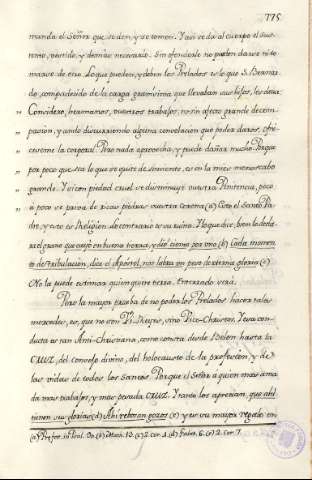 775
manda el Señor que se den, y se tomen. Y asi se da al cuerpo el sus-
tento, vestido, y demás necesario. Sin ofenderle no pueden darse ni to-
marse de otro. Lo que pueden, y deben los Prelados es lo que S. Bernar-
do, compadecido de la carga gravísima que llevaban sus hijos, les decia:
Considero, hermanos, vuestros trabajos, no sin afecto grande de com-
pasion, y ando discurriendo alguna consolacion que poder daros, ofre-
ciéndome la corporal. Pero nada aprovecha, y puede dañar mucho. Porque
por poco que sea lo que se quite de simiente, es en la mies menoscabo
grande. Y si con piedad cruel se disminuye vuestra Penitencia, poco
á poco se priva de ricas piedras vuestra corona (a) Esto el Santo Pa-
dre, y esto es Religion. Lo contrario es su ruina.
el grano que cayó en buena tierra, y dió ciento por uno (b) Cada momen-
to de tribulacion, dice el Apóstol, nos labra un peso de eterna gloria (c)
No la puede estimar quien quite tierra, trocando
Pero la mayor prueba de no poder los Prelados hacer tales
mercedes, es, que no son sino Vice-Christos. Y esa con-
ducta es tan Anti-Christiana, como consta desde Belen hasta la
CRUZ, del consejo divino, del holocausto de la profesion, y de
las vidas de todos los Santos. Porque el Señor á quien mas ama
da mas trabajos, y mas pesada CRUZ. Y tanto los aprecian, que alli
tienen sus glorias (d) Ahi rebosan gozos (e) y es su mayor regalo en
(a) (b) Matth. 13. (c) 2. Cor. 4. (d) Galat. 6. (e) 2. Cor. 7.